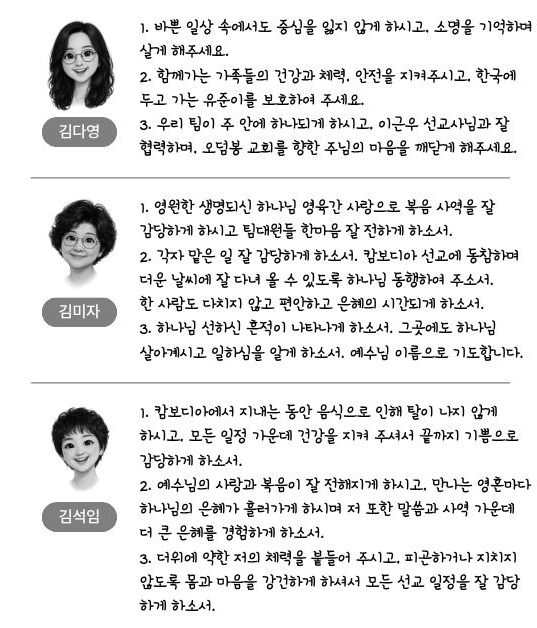 1. 바쁜 일상 속에서도 중심을 잃지 않게 하시고, 소명을 기억하며
살게 해주세요.
2. 함께가는 가족들의 건강과 체력, 안전을 지켜주시고, 한국에
두고 가는 유준이를 보호하여 주세요.
3. 우리 팀이 주 안에 하나되게 하시고, 이근우 선교사님과 잘
협력하며, 오덤봉 교회를 향한 주님의 마음을 깨닫게 해주세요.
김다영
1. 영원한 생명되신 하나님 영육간 사랑으로 복음 사역을 잘
감당하게 하시고 팀대원들 한마음 잘 전하게 하소서.
2. 각자 맡은 일 잘 감당하게 하소서. 캄보디아 선교에 동참하며
더운 날씨에 잘 다녀 올 수 있도록 하나님 동행하여 주소서.
한 사람도 다치지 않고 편안하고 은혜의 시간되게 하소서.
3. 하나님 선하신 흔적이 나타나게 하소서. 그곳에도 하나님
살아계시고 일하심을 알게 하소서. 예수님 이름으로 기도합니다.
김미자
1. 캄보디아에서 지내는 동안 음식으로 인해 탈이 나지 않게
하시고, 모든 일정 가운데 건강을 지켜 주셔서 끝까지 기쁨으로
감당하게 하소서.
2. 예수님의 사랑과 복음이 잘 전해지게 하시고, 만나는 영혼마다
하나님의 은혜가 흘러가게 하시며 저 또한 말씀과 사역 가운데
더 큰 은혜를 경험하게 하소서.
3. 더위에 약한 저의 체력을 붙들어 주시고, 피곤하거나 지치지
않도록 몸과 마음을 강건하게 하셔서 모든 선교 일정을 잘 감당
하게 하소서.
김석임